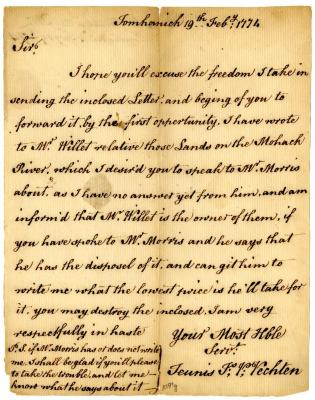 Tomhanick 19th Feby. 1774
Sir.
I hope you'll excuse the freedom I take in
sending the inclosed Letter, and beging of you to
forward it, by the first oppertunity, I have wrote
to Mr. Willet relative those Lands on the Mohack
River, which I desir'd you to speak to Mr. Morris
about, as I have no answer yet from him, and am
inform'd that Mr. Willet is the owner of them, if
you have spoke to Mr. Morris and he says that
he has the disposel of it, and can git him to
write me what the lowest price is he'll take for
it, you may destroy the inclosed, I am very
respectfully in haste
Your Most Hble
Servt.
Teunis Vechten
P.S. if Mr. Morris has or does not write
me I shall be glad if you'll please
to take the trouble, and let me
know what he says about it